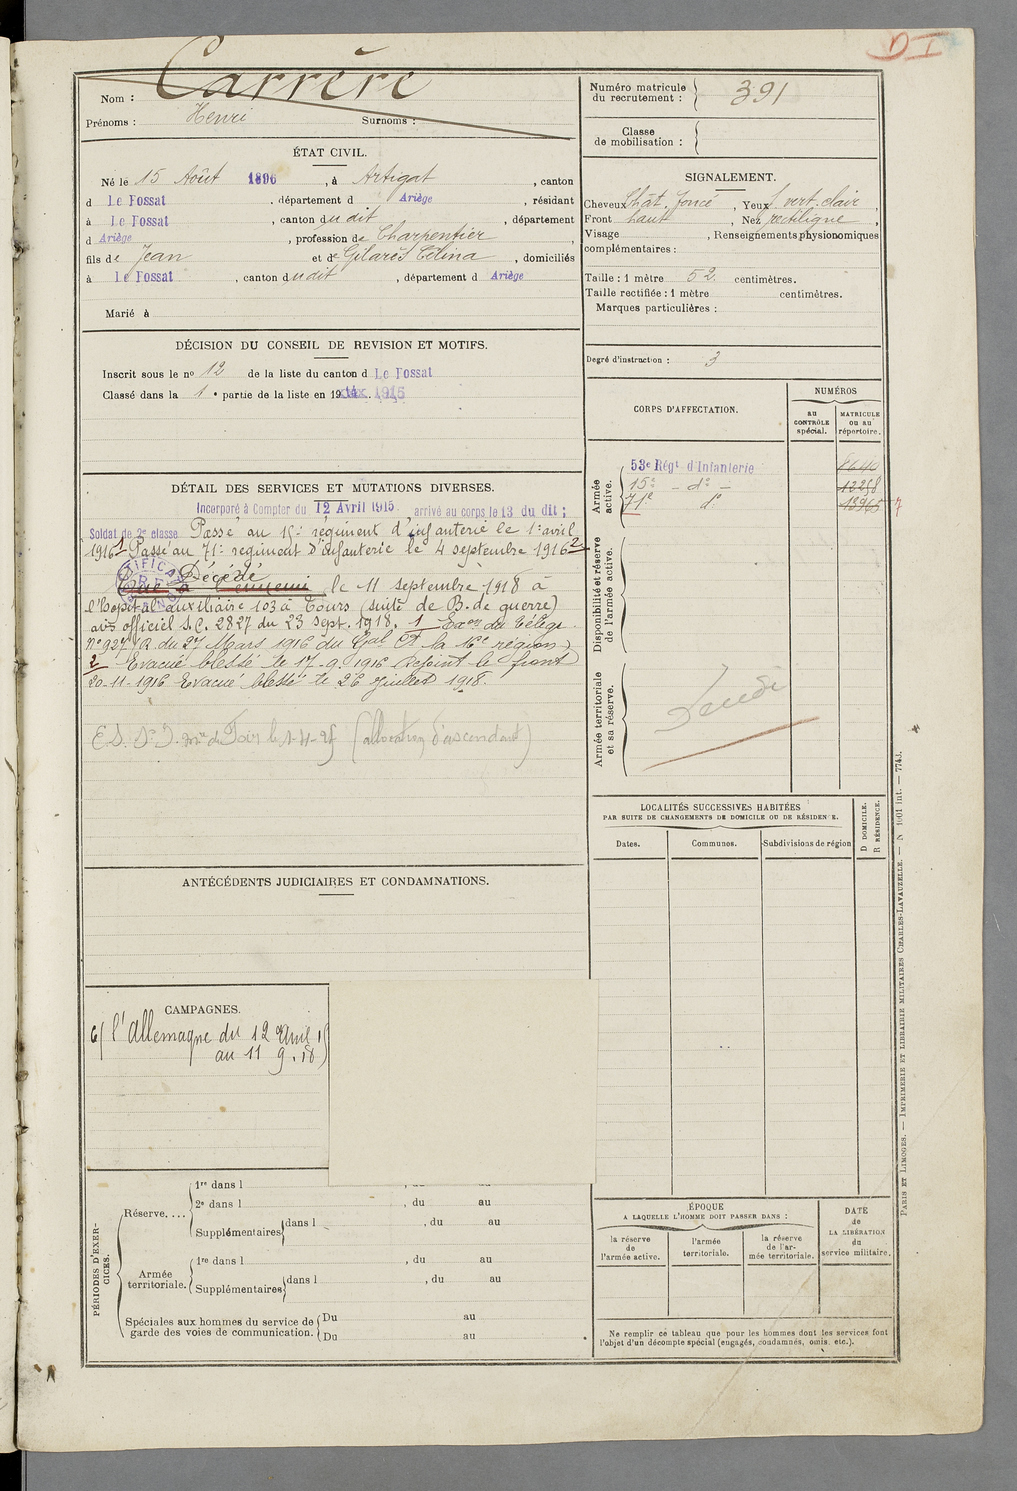 DI
Nom : Carrère
Prénoms : Henri Surnoms :
Numéro matricule du recrutement : 391
Classe de mobilisation :
ÉTAT CIVIL.
Né le 15 Août 1896, à Artigat, canton
d Le Fossat, département d Ariège, résidant
à Le Fossat, canton dudit, département
d Ariège, profession de Charpentier,
fils de Jean et de Gilarès Célina, domiciliés
à Le Fossat, canton dudit, département d Ariège
Marié à
SIGNALEMENT.
Cheveux Chât. foncé, Yeux vert clair,
Front haut, Nez rectiligne,
Visage , Renseignements physionomiques
complémentaires :
Taille : 1 mètre 52 centimètres.
Taille rectifiée : 1 mètre centimètres.
Marques particulières :
Degré d'instruction : 3
DÉCISION DU CONSEIL DE REVISION ET MOTIFS.
Inscrit sous le no 12 de la liste du canton d Le Fossat
Classé dans la 1e partie de la liste en 19 1915
DÉTAIL DES SERVICES ET MUTATIONS DIVERSES.
Incorporé à Compter du 12 Avril 1915. arrivé au corps le 13 du dit ;
Soldat de 2e classe Passé au 15e régiment d'infanterie le 1er avril
1916 1 Passé au 71e régiment d'infanterie le 4 septembre 1916 2
Décédé
Tué à l'ennemi le 11 septembre 1918 à
l'hopital auxiliaire 103 à Tours (suite de B. de guerre)
avis officiel S.C. 2827 du 23 sept. 1918. 1 Exon du Télégr.
no 927/R du 27 Mars 1916 du Gal Ct la 16e région
2 Evacué blessé le 17-9-1916 rejoint le front
20-11-1916 Evacué blessé le 26 juillet 1918.
(allocation d'ascendant)
CORPS D'AFFECTATION.
NUMÉROS
au CONTRÔLE spécial.
MATRICULE ou au répertoire.
Armée active.
53e Régt d'Infanterie 8640
15e - do - 12258
71e do 13965
Disponibilité et réserve de l'armée active.
Armée territoriale et sa réserve.
LOCALITÉS SUCCESSIVES HABITÉES
PAR SUITE DE CHANGEMENTS DE DOMICILE OU DE RÉSIDENCE.
D DOMICILE.
R RÉSIDENCE.
Dates. Communes. Subdivisions de région
ANTÉCÉDENTS JUDICIAIRES ET CONDAMNATIONS.
CAMPAGNES.
C/ l'Allemagne du 12 Avril 15
au 11 9.18)
PÉRIODES D'EXERCICES.
Réserve....
1re dans l , du au
2e dans l , du au
Supplémentaires dans l , du au
Armée territoriale.
1re dans l , du au
Supplémentaires dans l , du au
Spéciales aux hommes du service de garde des voies de communication.
Du au
Du au
ÉPOQUE
A LAQUELLE L'HOMME DOIT PASSER DANS :
la réserve de l'armée active.
l'armée territoriale.
la réserve de l'armée territoriale.
DATE de LA LIBÉRATION du service militaire.
Ne remplir ce tableau que pour les hommes dont les services font
l'objet d'un décompte spécial (engagés, condamnés, omis, etc.).
PARIS ET LIMOGES. — IMPRIMERIE ET LIBRAIRIE MILITAIRES CHARLES-LAVAUZELLE. — N 1001 int. — 7743.